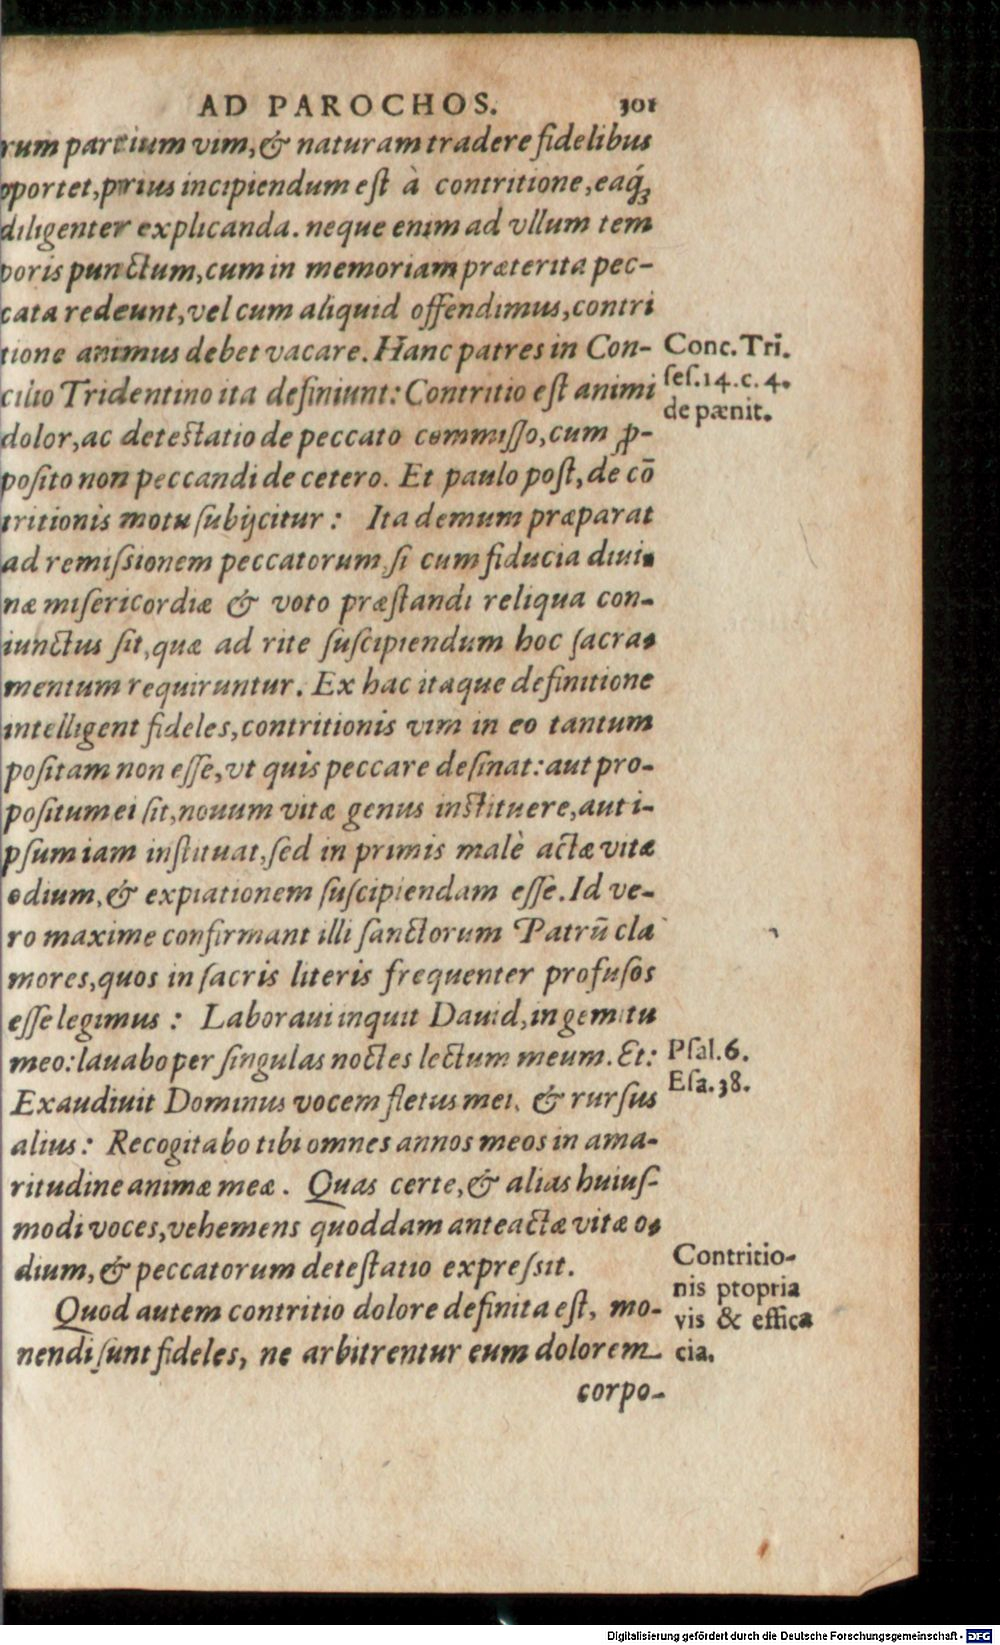 AD PAROCHOS. 301
rum partium vim, & naturam tradere fidelibus
oportet, prius incipiendum eſt à contritione, eaq́ꝫ
diligenter explicanda. neque enim ad vllum tem
poris punctum, cum in memoriam præterita pec-
cata redeunt, vel cum aliquid offendimus, contri
tione animus debet vacare. Hanc patres in Con-
cilio Tridentino ita definiunt: Contritio eſt animi
dolor, ac deteſtatio de peccato commiſſo, cum ꝓ-
poſito non peccandi de cetero. Et paulo poſt, de cō
tritionis motu ſubijcitur: Ita demum præparat
ad remiſsionem peccatorum, ſi cum fiducia diui-
næ miſericordiæ & voto præſtandi reliqua con-
iunctus ſit, quæ ad rite ſuſcipiendum hoc ſacra-
mentum requiruntur. Ex hac itaque definitione
intelligent fideles, contritionis vim in eo tantum
poſitam non eſſe, vt quis peccare deſinat: aut pro-
poſitum ei ſit, nouum vitæ genus inſtituere, aut i-
pſum iam inſtituat, ſed in primis malè actæ vitæ
odium, & expiationem ſuſcipiendam eſſe. Id ve-
ro maxime confirmant illi ſanctorum Patrū cla
mores, quos in ſacris literis frequenter profuſos
eſſe legimus: Laboraui inquit Dauid, in gemitu
meo: lauabo per ſingulas noctes lectum meum. Et:
Exaudiuit Dominus vocem fletus mei. & rurſus
alius: Recogitabo tibi omnes annos meos in ama-
ritudine animæ meæ. Quas certe, & alias huiuſ-
modi voces, vehemens quoddam anteactæ vitæ o-
dium, & peccatorum deteſtatio expreſsit.
Quod autem contritio dolore definita eſt, mo-
nendi ſunt fideles, ne arbitrentur eum dolorem
corpo-
Conc. Tri.
ſeſ. 14. c. 4.
de pænit.
Pſal. 6.
Eſa. 38.
Contritio-
nis propria
vis & effica
cia.
Digitalisierung gefördert durch die Deutsche Forschungsgemeinschaft - DFG